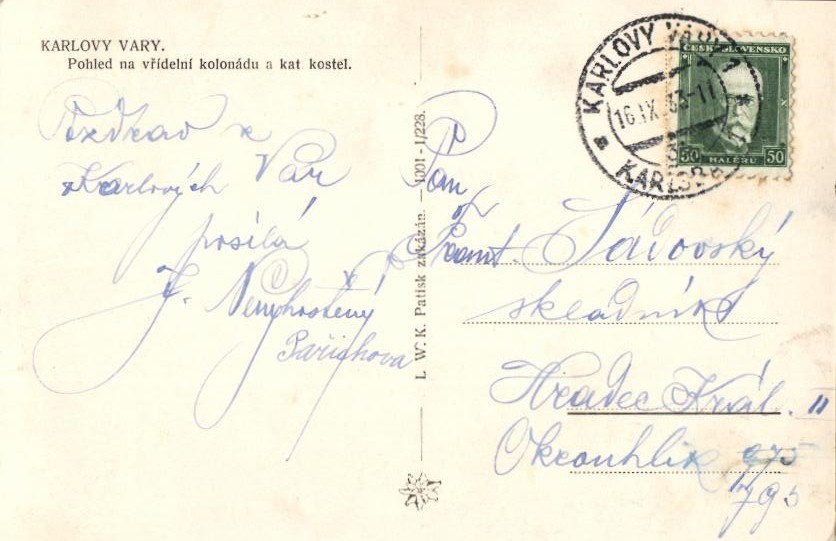 KARLOVY VARY.
Pohled na vřídelní kolonádu a kat kostel.
Pozdrav z
Karlových Var
posílá
J.
L. W. K. Patisk zakázán. — 1301 - 1/228.
KARLOVY VARY 1
16.IX.33-11
KARLSBAD
ČESKOSLOVENSKO
50 HALÉŘŮ 50
Pan
Sádovský
skladník
Hradec Král. II
Okrouhlík 675
795